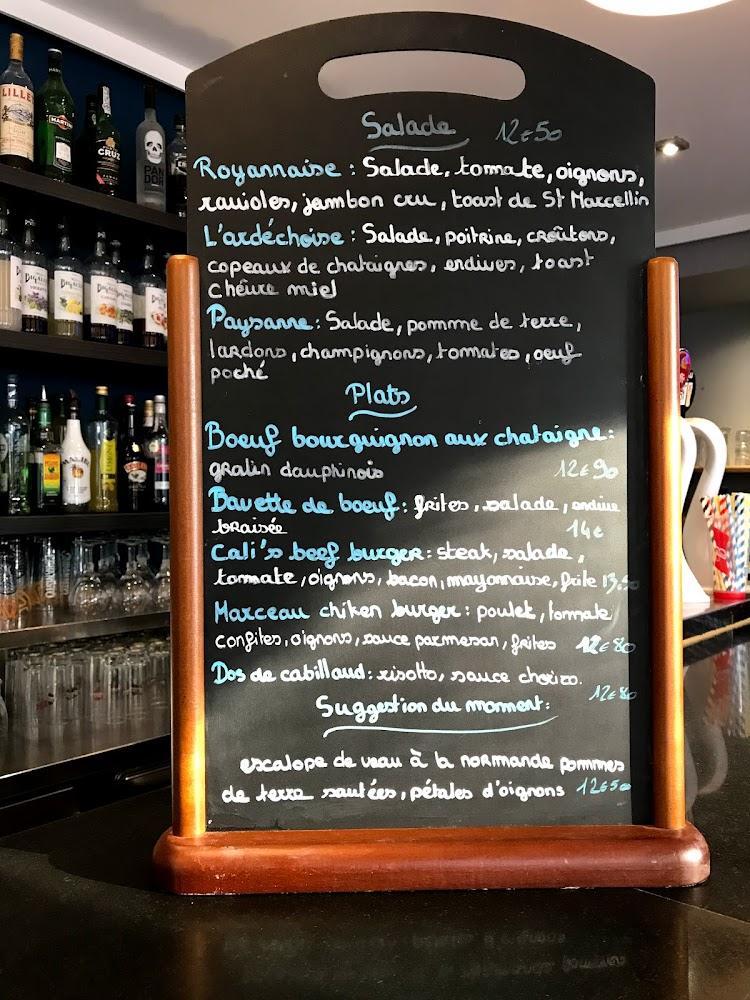 Salade 12€50
Royannaise : Salade, tomate, oignons,
ravioles, jambon cru, toast de St Marcellin
L'ardéchoise : Salade, poitrine, croûtons,
copeaux de chataignes, endives, toast
chèvre miel
Paysanne : Salade, pomme de terre,
lardons, champignons, tomates, oeuf
poché
Plats
Boeuf bourguignon aux chataigne :
gratin dauphinois 12€90
Bavette de boeuf : frites, salade, endive
braisée 14€
Cali's beef burger : steak, salade,
tomate, oignons, bacon, mayonnaise, frite 13,50
Marceau chiken burger : poulet, tomate
confites, oignons, sauce parmesan, frites 12€80
Dos de cabillaud : risotto, sauce chorizo.
12€80
Suggestion du moment :
escalope de veau à la normande pommes
de terre sautées, pétales d'oignons 12€50
LILLE
MARTINI
CRUZ
PAN
DOR
MALIBU
BAILEYS